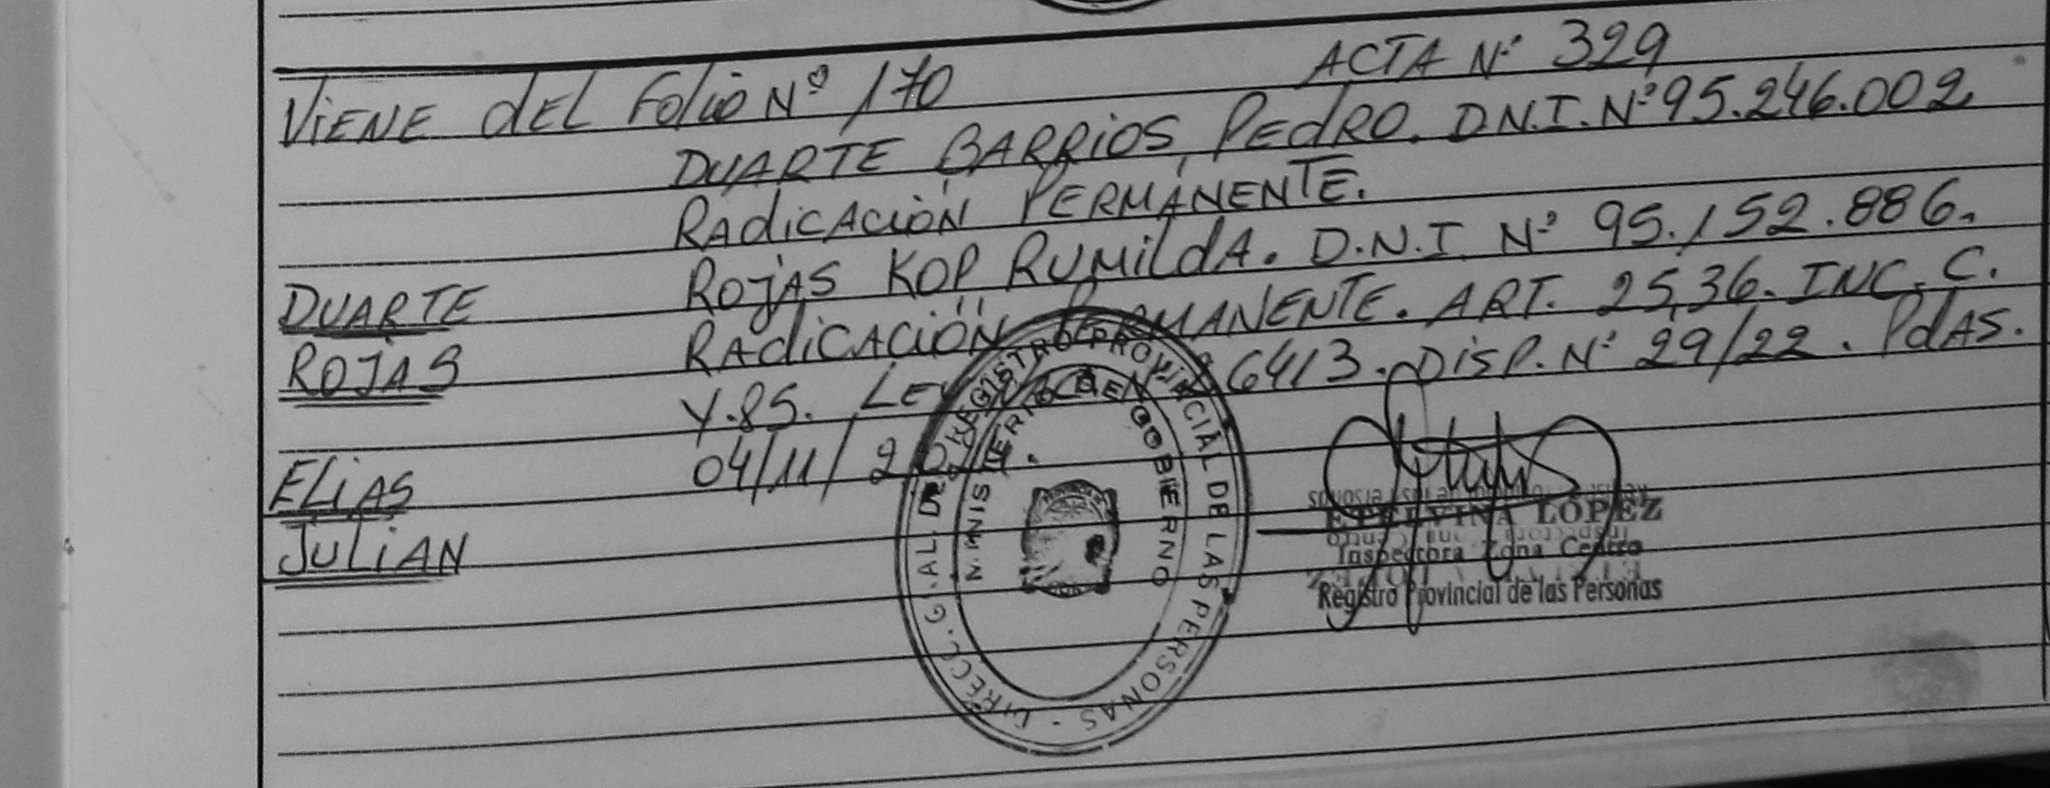 VIENE DEL Folio Nº 170
ACTA Nº 329
DUARTE BARRIOS, PEDRO. D.N.I. Nº 95.246.002
RADICACIÓN PERMANENTE.
DUARTE
ROJAS KOP RUMILDA. D.N.I. Nº 95.152.886.
ROJAS
RADICACIÓN PERMANENTE. ART. 25,36. INC. C.
Y.85. LEY 26413. DISP. Nº 29/22. PdAS.
ELIAS
04/11/
JULIAN
DIRECC. G .AL DE REGISTRO PROVINCIAL DE LAS PERSONAS -
MINISTERIO DE GOBIERNO
LOPEZ
Inspectora Zona Centro
Registro Provincial de las Personas